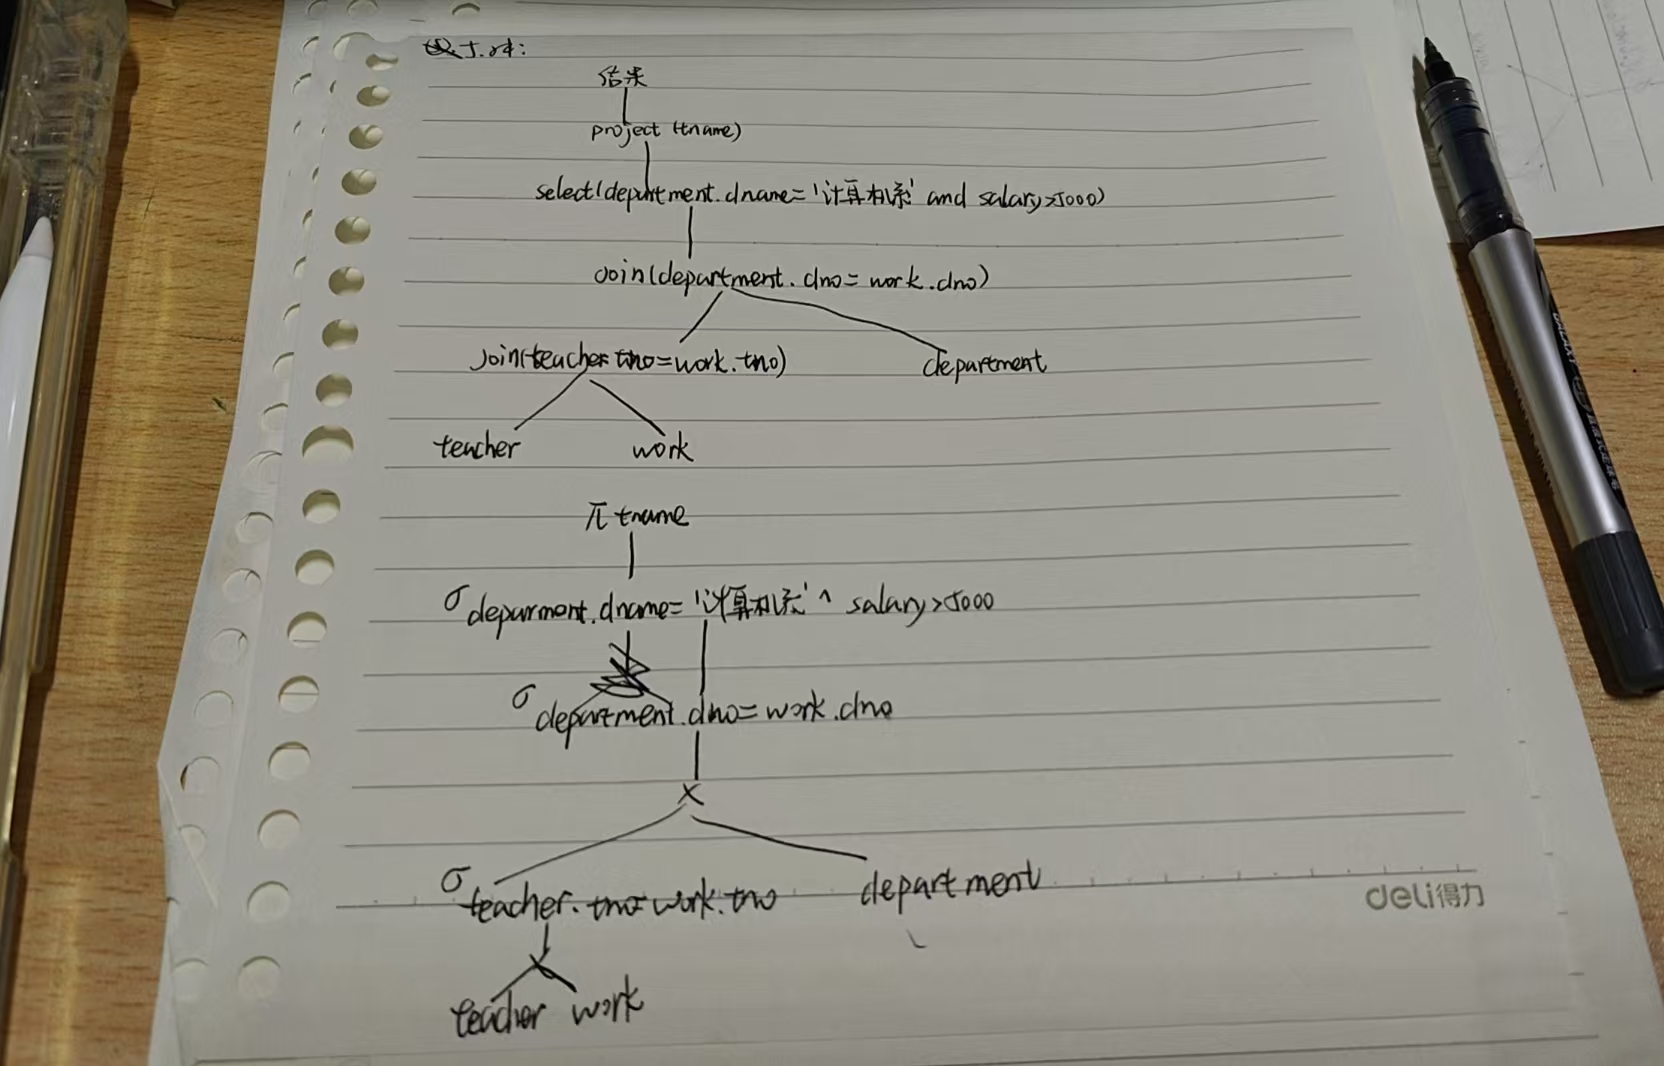 结果
project (tname)
select(department.dname='计算机系' and salary>5000)
Join(department.dno=work.dno)
Join(teacher.tno=work.tno) department
teacher work
π tname
σ depurment.dname='计算机系' ^ salary>5000
σ department.dno=work.dno
×
σ teacher.tno=work.tno department
×
teacher work
deli得力